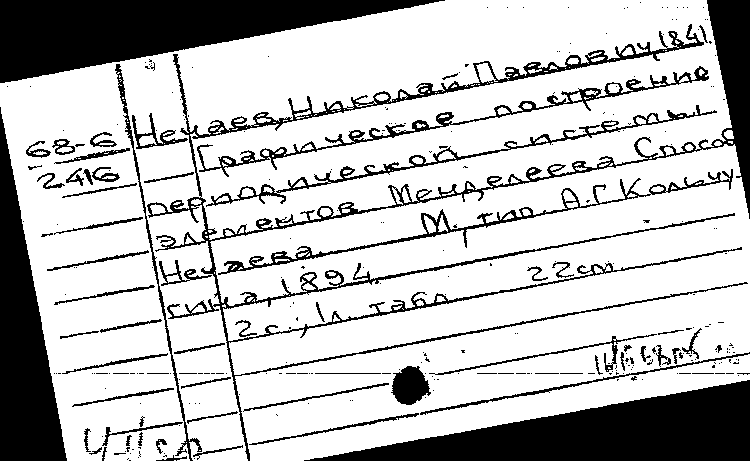 Нечаев, Николай Павлович, (841
68-6
2416
Графическое построение
периодической системы
элементов Менделеева Способ
Нечаева. М., тип. А.Г. Кольчу-
гина, 1894.
2 с., 1 л. табл 22 см.